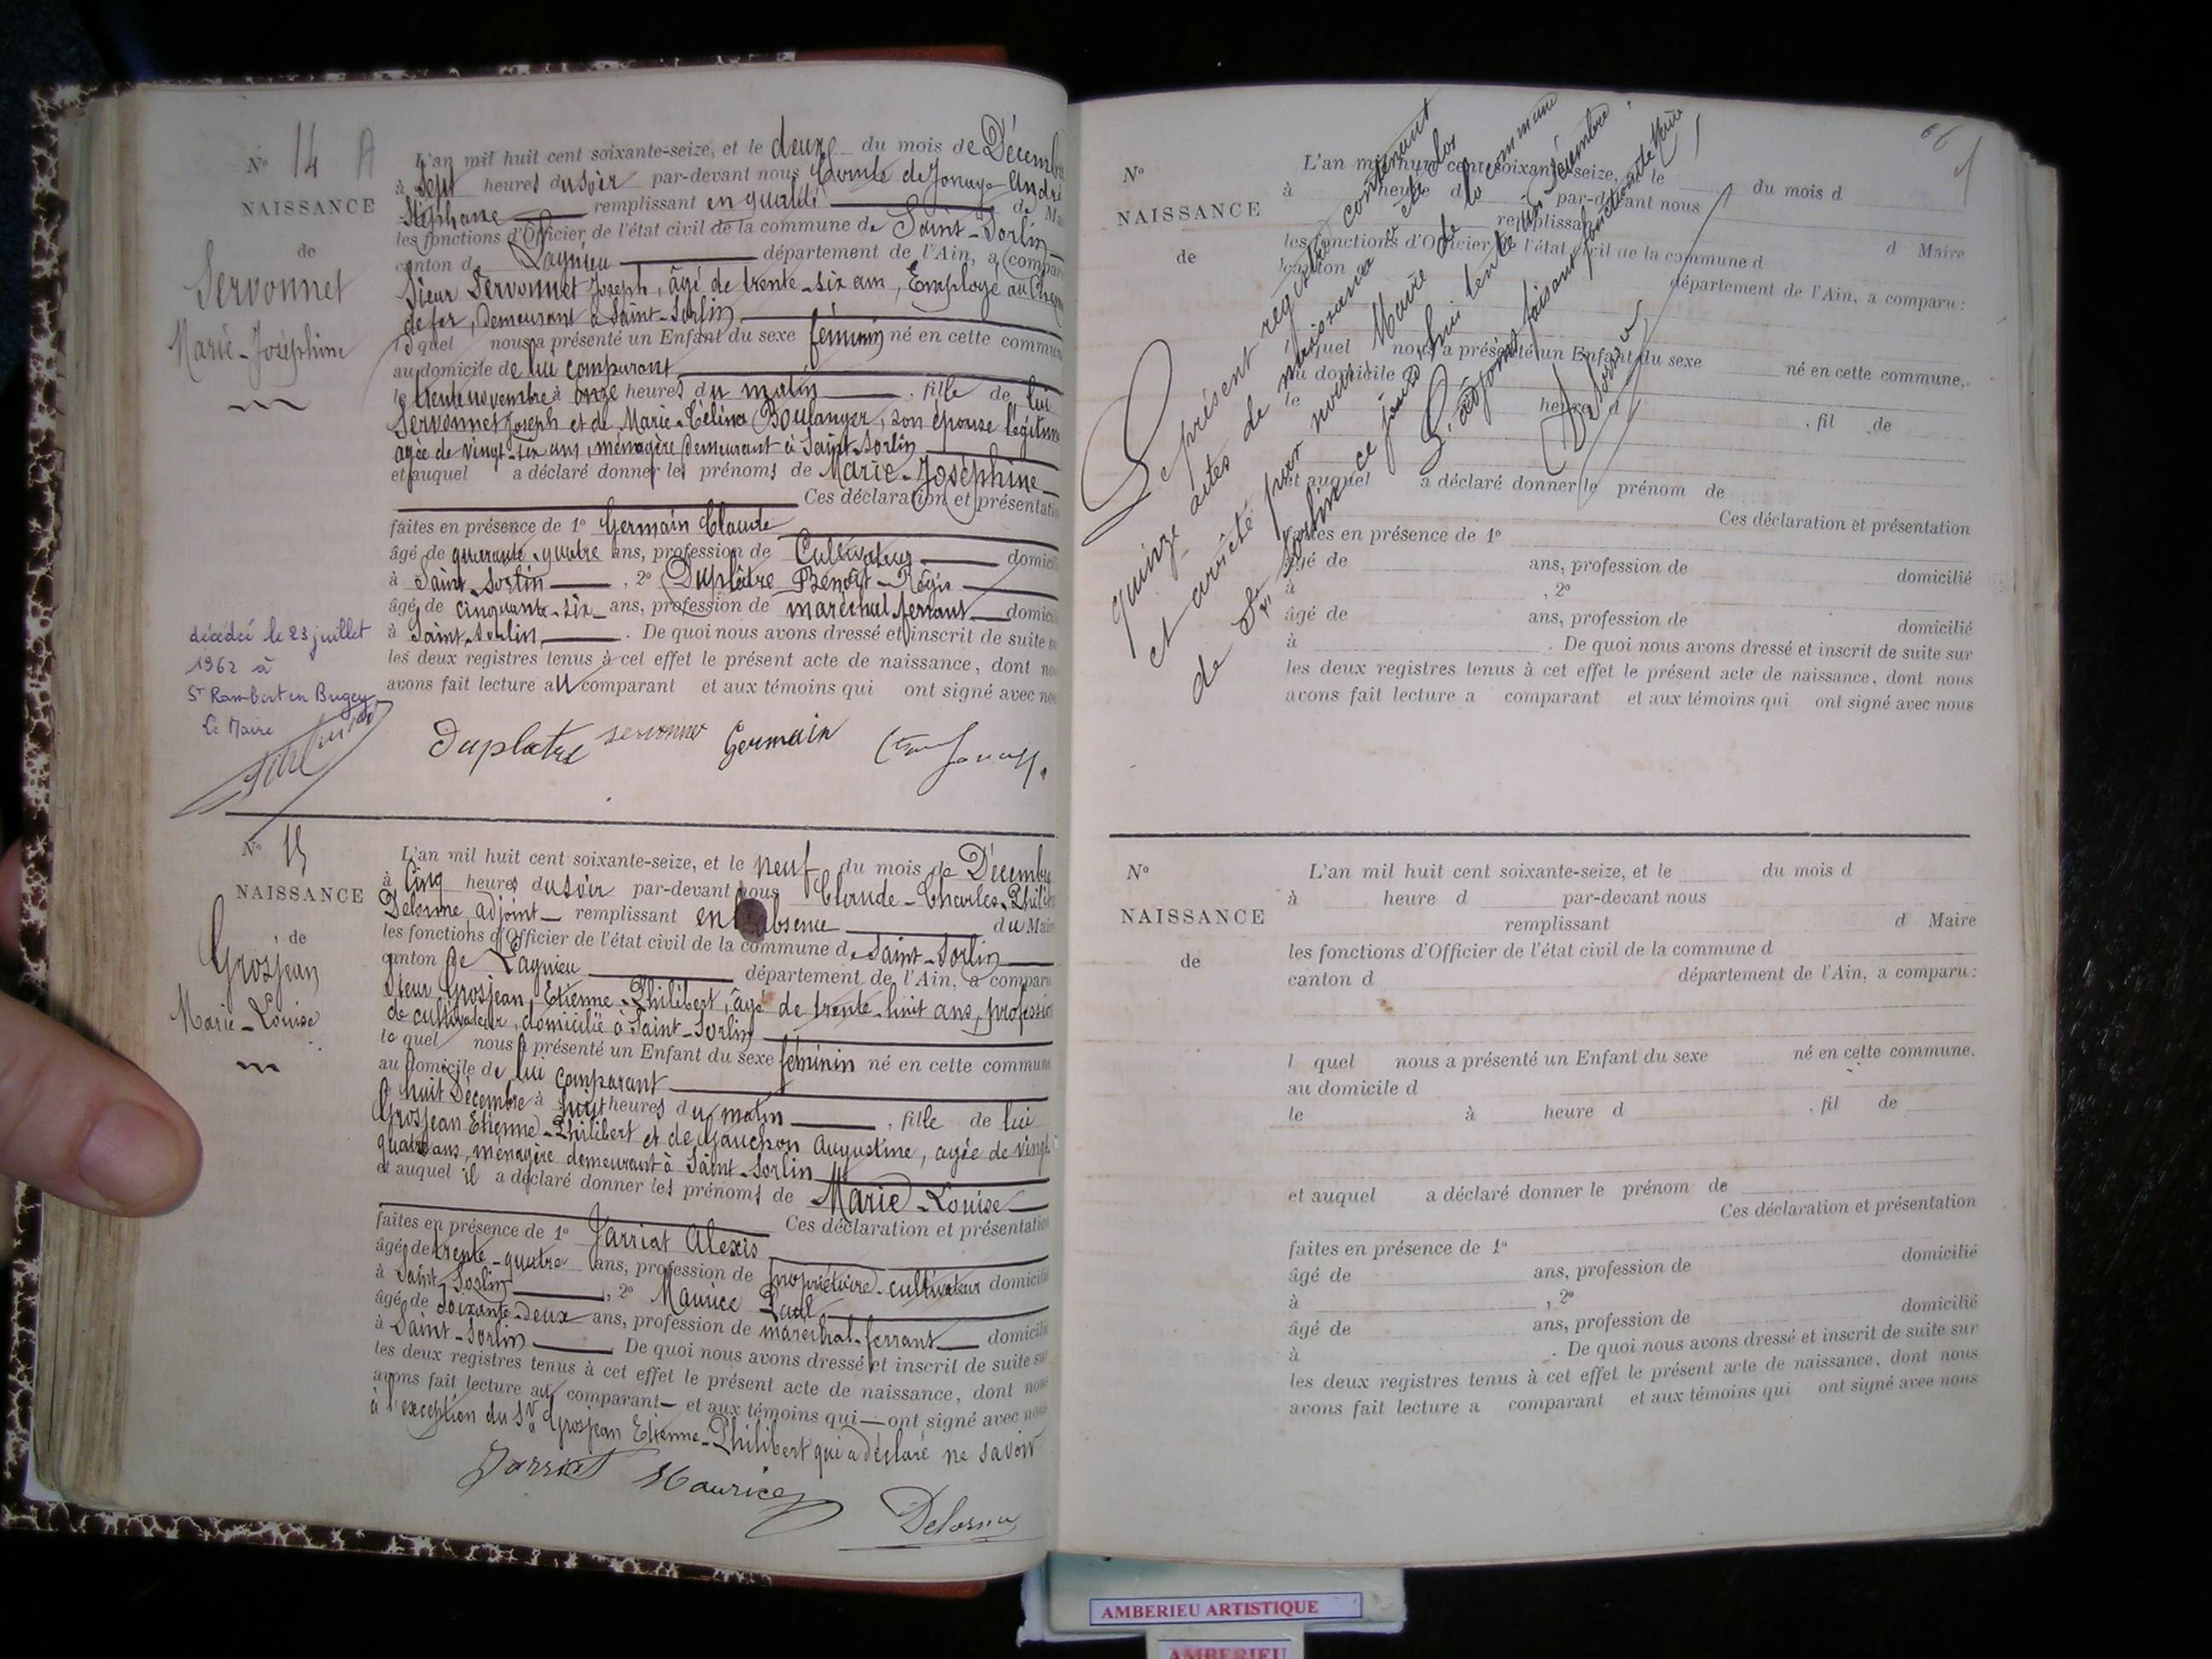 N° 14 A
NAISSANCE
de
Servonnet
Marie-Joséphine
L'an mil huit cent soixante-seize, et le deux du mois de Décemb
à Sept heures du soir par-devant nous Comte de Jonage André
Stéphane remplissant en qualité de M
les fonctions d'Officier de l'état civil de la commune de Saint-Sorlin
canton de Lagnieu département de l'Ain, a compar
Sieur Servonnet Joseph, âgé de trente-six ans, Employé au Chem
de fer, demeurant à Saint-Sorlin
lequel nous a présenté un Enfant du sexe féminin né en cette commu
au domicile de lui comparant
le trente novembre à onze heures du matin, fille de lui
Servonnet Joseph et de Marie-Célina Boulanger, son épouse légitime
agée de vingt-six ans, ménagère demeurant à Saint-Sorlin
et auquel a déclaré donner les prénoms de Marie-Joséphine
Ces déclaration et présentati
faites en présence de 1° Germain Claude
âgé de quarante-quatre ans, profession de Cultivateur domici
à Saint-Sorlin, 2° Duplâtre Benoît-Régis
âgé de cinquante-six ans, profession de maréchal ferrant domici
à Saint-Sorlin. De quoi nous avons dressé et inscrit de suite s
les deux registres tenus à cet effet le présent acte de naissance, dont no
avons fait lecture au comparant et aux témoins qui ont signé avec no
décédée le 23 juillet
1962 à
St Rambert en Bugey
Le Maire
Duplatre Servonnet Germain
N° 15
NAISSANCE
de
Grosjean
Marie-Louise
L'an mil huit cent soixante-seize, et le neuf du mois de Décembre
à Cinq heures du soir par-devant nous Claude-Charles-Philib
Delorme, adjoint remplissant en absence du Mair
les fonctions d'Officier de l'état civil de la commune de Saint-Sorlin
canton de Lagnieu département de l'Ain, a comparu
Sieur Grosjean, Etienne-Philibert, âgé de trente-huit ans, profession
de cultivateur, domicilié à Saint-Sorlin
lequel nous a présenté un Enfant du sexe féminin né en cette commune
au domicile de lui comparant
le huit Décembre à huit heures du matin, fille de lui
Grosjean Etienne-Philibert et de Gauchon Augustine, agée de vingt
quatre ans, ménagère demeurant à Saint-Sorlin
et auquel il a déclaré donner les prénoms de Marie-Louise
Ces déclaration et présentation
faites en présence de 1° Jarriat Alexis
âgé de trente-quatre ans, profession de propriétaire-cultivateur domicili
à Saint-Sorlin, 2° Maurice Paul
âgé de Soixante-deux ans, profession de maréchal-ferrant domicili
à Saint-Sorlin. De quoi nous avons dressé et inscrit de suite su
les deux registres tenus à cet effet le présent acte de naissance, dont nous
avons fait lecture au comparant et aux témoins qui ont signé avec nous
à l'exception du Sr Grosjean Etienne-Philibert qui a déclaré ne savoir
Jarriat Maurice Delorme
66
N°
NAISSANCE
de
L'an mil huit cent soixante-seize, et le du mois d
à heure d par-devant nous
remplissant d Maire
les fonctions d'Officier de l'état civil de la commune d
canton département de l'Ain, a comparu :
l quel nous a présenté un Enfant du sexe né en cette commune.
au domicile d
le heure d , fil de
et auquel a déclaré donner le prénom de
Ces déclaration et présentation
faites en présence de 1°
âgé de ans, profession de domicilié
à , 2°
âgé de ans, profession de domicilié
à . De quoi nous avons dressé et inscrit de suite sur
les deux registres tenus à cet effet le présent acte de naissance, dont nous
avons fait lecture a comparant et aux témoins qui ont signé avec nous
Le présent registre contenant
quinze actes de naissance a été clos
et arrêté par nous Maire de la commune
de St Sorlin ce jourd'hui trente un Décembre
L'adjoint faisant fonction de Maire
Delorme
N°
NAISSANCE
de
L'an mil huit cent soixante-seize, et le du mois d
à heure d par-devant nous
remplissant d Maire
les fonctions d'Officier de l'état civil de la commune d
canton d département de l'Ain, a comparu :
l quel nous a présenté un Enfant du sexe né en cette commune.
au domicile d
le à heure d , fil de
et auquel a déclaré donner le prénom de
Ces déclaration et présentation
faites en présence de 1°
âgé de ans, profession de domicilié
à , 2°
âgé de ans, profession de domicilié
à . De quoi nous avons dressé et inscrit de suite sur
les deux registres tenus à cet effet le présent acte de naissance, dont nous
avons fait lecture a comparant et aux témoins qui ont signé avec nous
AMBERIEU ARTISTIQUE
AMBERIEU